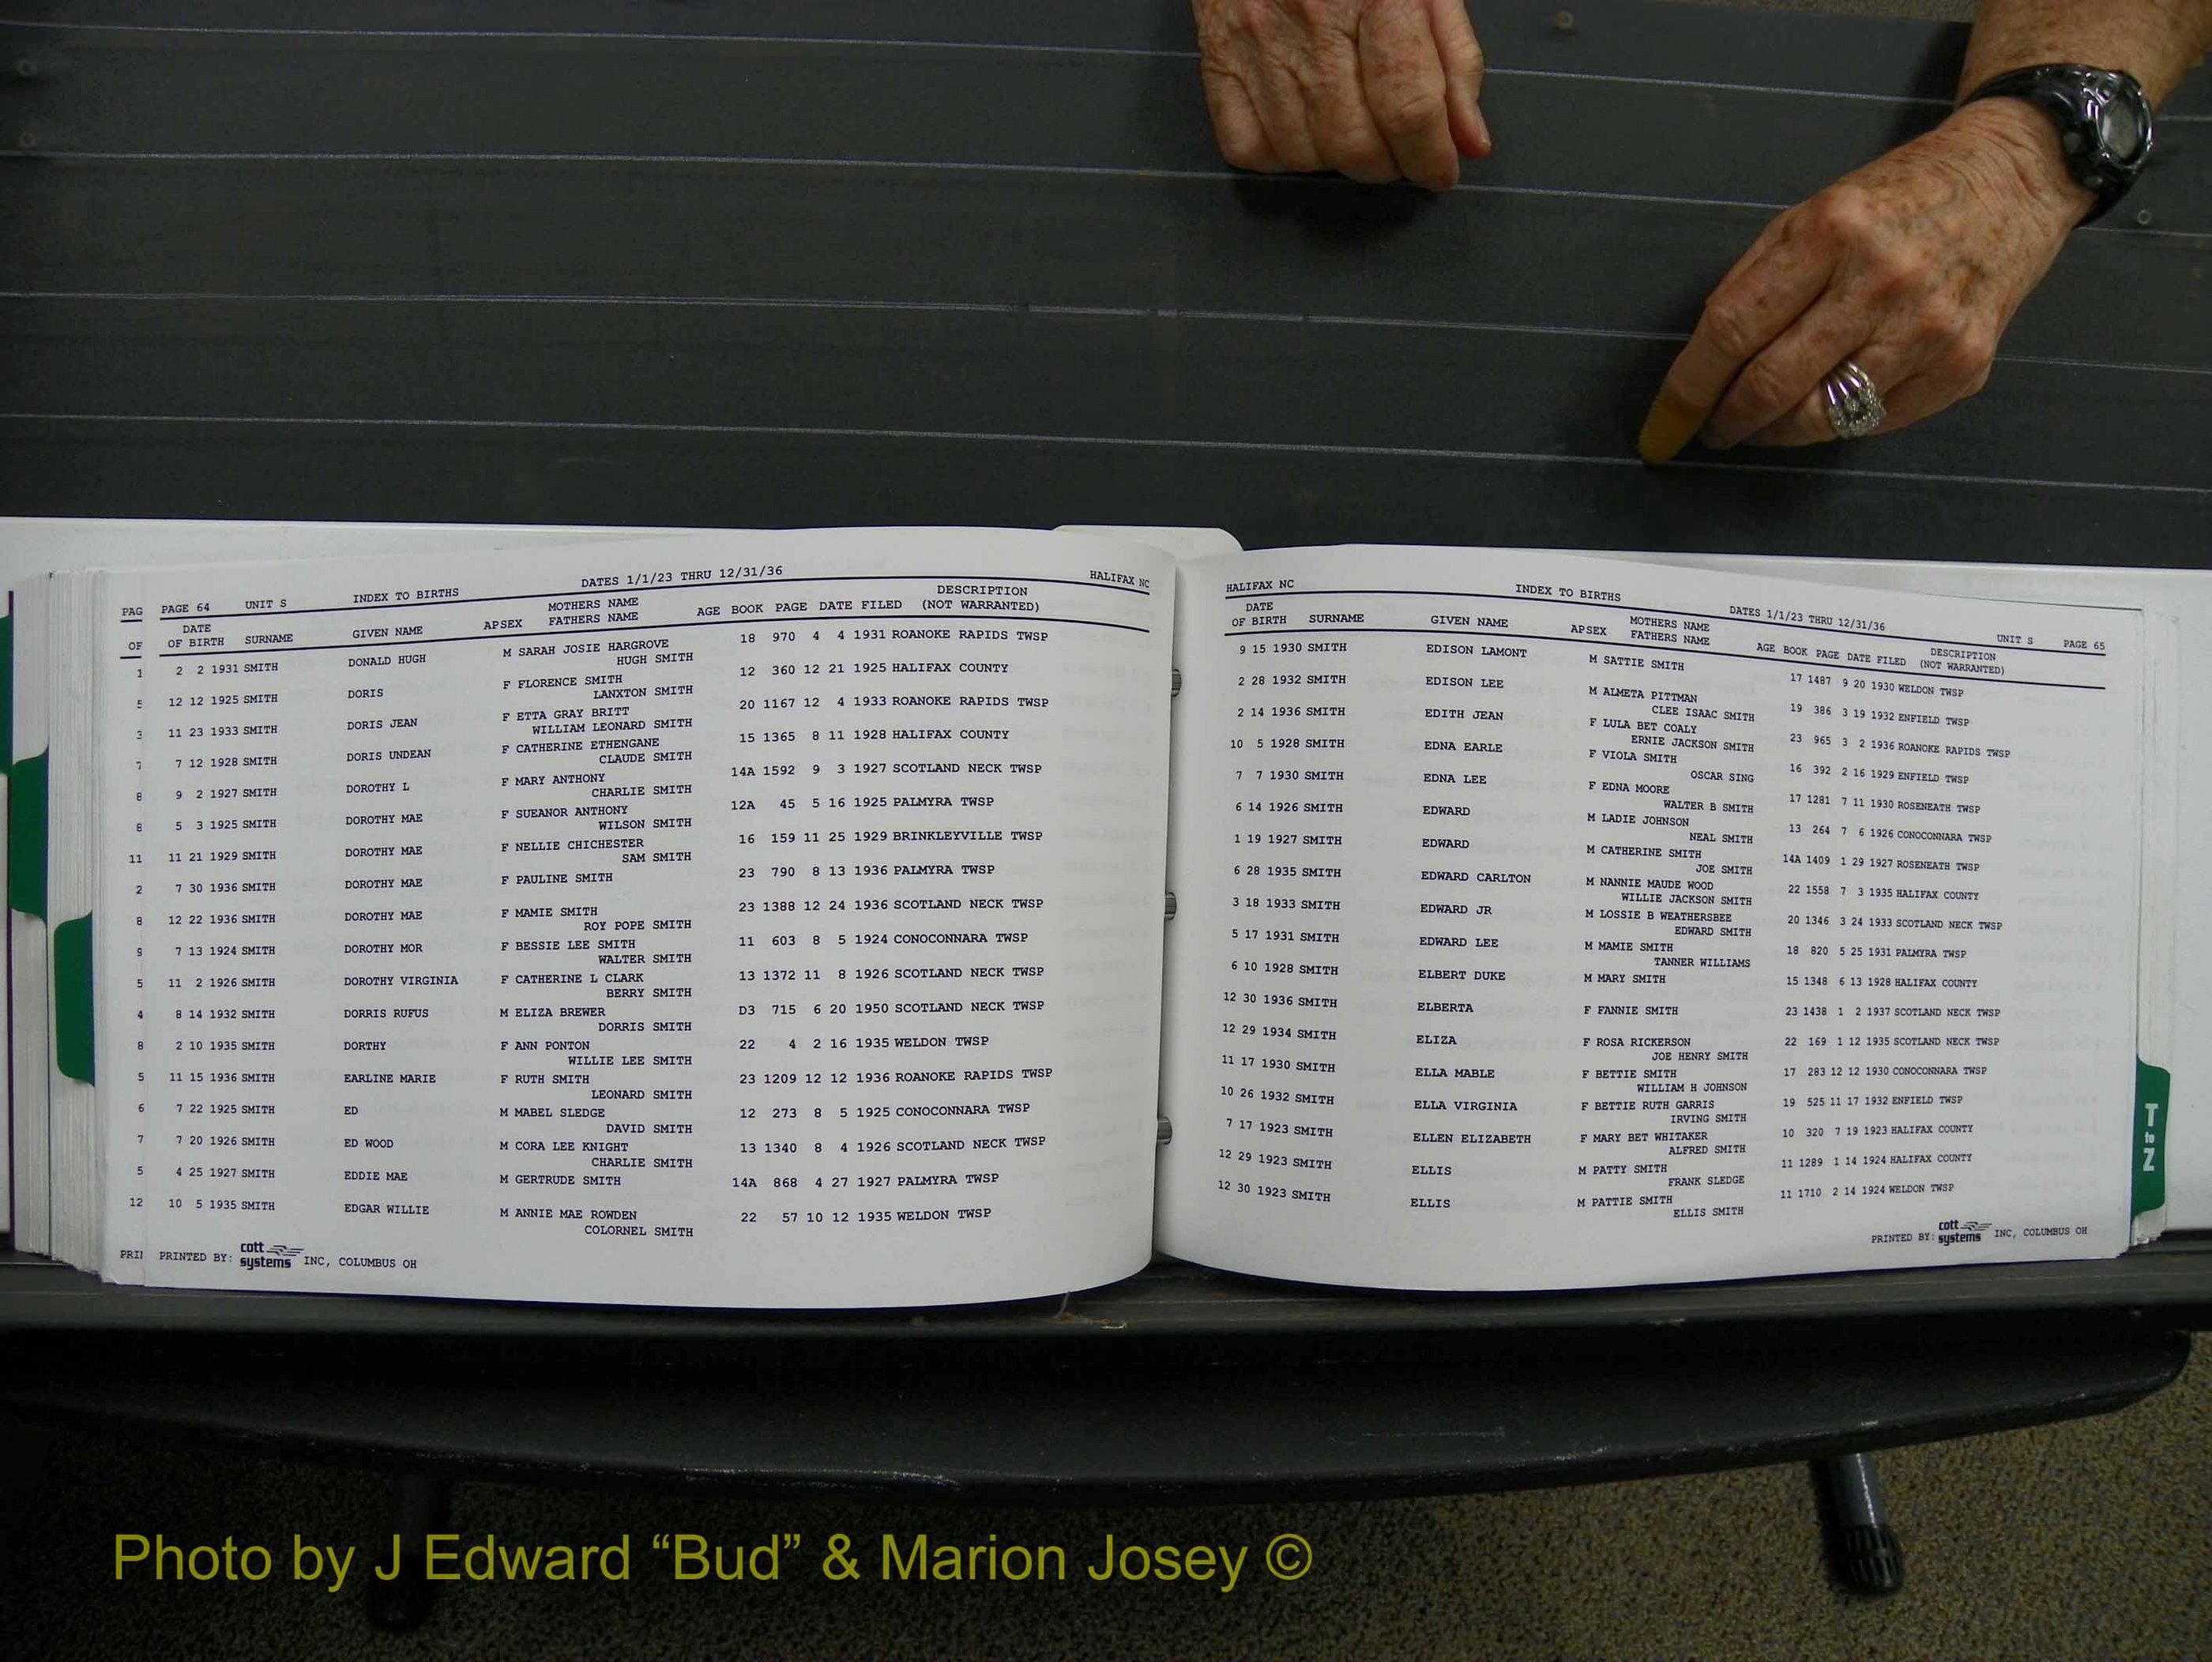 PAG
OF
1
5
3
7
8
6
11
2
8
9
5
4
8
5
6
7
5
12
PRI
PAGE 64 UNIT S INDEX TO BIRTHS DATES 1/1/23 THRU 12/31/36 HALIFAX NC
DATE MOTHERS NAME DESCRIPTION
OF BIRTH SURNAME GIVEN NAME APSEX FATHERS NAME AGE BOOK PAGE DATE FILED (NOT WARRANTED)
2 2 1931 SMITH DONALD HUGH M SARAH JOSIE HARGROVE 18 970 4 4 1931 ROANOKE RAPIDS TWSP
HUGH SMITH
12 12 1925 SMITH DORIS F FLORENCE SMITH 12 360 12 21 1925 HALIFAX COUNTY
LANXTON SMITH
11 23 1933 SMITH DORIS JEAN F ETTA GRAY BRITT 20 1167 12 4 1933 ROANOKE RAPIDS TWSP
WILLIAM LEONARD SMITH
7 12 1928 SMITH DORIS UNDEAN F CATHERINE ETHENGANE 15 1365 8 11 1928 HALIFAX COUNTY
CLAUDE SMITH
9 2 1927 SMITH DOROTHY L F MARY ANTHONY 14A 1592 9 3 1927 SCOTLAND NECK TWSP
CHARLIE SMITH
5 3 1925 SMITH DOROTHY MAE F SUEANOR ANTHONY 12A 45 5 16 1925 PALMYRA TWSP
WILSON SMITH
11 21 1929 SMITH DOROTHY MAE F NELLIE CHICHESTER 16 159 11 25 1929 BRINKLEYVILLE TWSP
SAM SMITH
7 30 1936 SMITH DOROTHY MAE F PAULINE SMITH 23 790 8 13 1936 PALMYRA TWSP
12 22 1936 SMITH DOROTHY MAE F MAMIE SMITH 23 1388 12 24 1936 SCOTLAND NECK TWSP
ROY POPE SMITH
7 13 1924 SMITH DOROTHY MOR F BESSIE LEE SMITH 11 603 8 5 1924 CONOCONNARA TWSP
WALTER SMITH
11 2 1926 SMITH DOROTHY VIRGINIA F CATHERINE L CLARK 13 1372 11 8 1926 SCOTLAND NECK TWSP
BERRY SMITH
8 14 1932 SMITH DORRIS RUFUS M ELIZA BREWER D3 715 6 20 1950 SCOTLAND NECK TWSP
DORRIS SMITH
2 10 1935 SMITH DORTHY F ANN PONTON 22 4 2 16 1935 WELDON TWSP
WILLIE LEE SMITH
11 15 1936 SMITH EARLINE MARIE F RUTH SMITH 23 1209 12 12 1936 ROANOKE RAPIDS TWSP
LEONARD SMITH
7 22 1925 SMITH ED M MABEL SLEDGE 12 273 8 5 1925 CONOCONNARA TWSP
DAVID SMITH
7 20 1926 SMITH ED WOOD M CORA LEE KNIGHT 13 1340 8 4 1926 SCOTLAND NECK TWSP
CHARLIE SMITH
4 25 1927 SMITH EDDIE MAE M GERTRUDE SMITH 14A 868 4 27 1927 PALMYRA TWSP
10 5 1935 SMITH EDGAR WILLIE M ANNIE MAE ROWDEN 22 57 10 12 1935 WELDON TWSP
COLORNEL SMITH
PRINTED BY: cott systems INC, COLUMBUS OH
HALIFAX NC INDEX TO BIRTHS DATES 1/1/23 THRU 12/31/36 UNIT S PAGE 65
DATE MOTHERS NAME DESCRIPTION
OF BIRTH SURNAME GIVEN NAME APSEX FATHERS NAME AGE BOOK PAGE DATE FILED (NOT WARRANTED)
9 15 1930 SMITH EDISON LAMONT M SATTIE SMITH 17 1487 9 20 1930 WELDON TWSP
2 28 1932 SMITH EDISON LEE M ALMETA PITTMAN 19 386 3 19 1932 ENFIELD TWSP
CLEE ISAAC SMITH
2 14 1936 SMITH EDITH JEAN F LULA BET COALY 23 965 3 2 1936 ROANOKE RAPIDS TWSP
ERNIE JACKSON SMITH
10 5 1928 SMITH EDNA EARLE F VIOLA SMITH 16 392 2 16 1929 ENFIELD TWSP
OSCAR SING
7 7 1930 SMITH EDNA LEE F EDNA MOORE 17 1281 7 11 1930 ROSENEATH TWSP
WALTER B SMITH
6 14 1926 SMITH EDWARD M LADIE JOHNSON 13 264 7 6 1926 CONOCONNARA TWSP
NEAL SMITH
1 19 1927 SMITH EDWARD M CATHERINE SMITH 14A 1409 1 29 1927 ROSENEATH TWSP
JOE SMITH
6 28 1935 SMITH EDWARD CARLTON M NANNIE MAUDE WOOD 22 1558 7 3 1935 HALIFAX COUNTY
WILLIE JACKSON SMITH
3 18 1933 SMITH EDWARD JR M LOSSIE B WEATHERSBEE 20 1346 3 24 1933 SCOTLAND NECK TWSP
EDWARD SMITH
5 17 1931 SMITH EDWARD LEE M MAMIE SMITH 18 820 5 25 1931 PALMYRA TWSP
TANNER WILLIAMS
6 10 1928 SMITH ELBERT DUKE M MARY SMITH 15 1348 6 13 1928 HALIFAX COUNTY
12 30 1936 SMITH ELBERTA F FANNIE SMITH 23 1438 1 2 1937 SCOTLAND NECK TWSP
12 29 1934 SMITH ELIZA F ROSA RICKERSON 22 169 1 12 1935 SCOTLAND NECK TWSP
JOE HENRY SMITH
11 17 1930 SMITH ELLA MABLE F BETTIE SMITH 17 283 12 12 1930 CONOCONNARA TWSP
WILLIAM H JOHNSON
10 26 1932 SMITH ELLA VIRGINIA F BETTIE RUTH GARRIS 19 525 11 17 1932 ENFIELD TWSP
IRVING SMITH
7 17 1923 SMITH ELLEN ELIZABETH F MARY BET WHITAKER 10 320 7 19 1923 HALIFAX COUNTY
ALFRED SMITH
12 29 1923 SMITH ELLIS M PATTY SMITH 11 1289 1 14 1924 HALIFAX COUNTY
FRANK SLEDGE
12 30 1923 SMITH ELLIS M PATTIE SMITH 11 1710 2 14 1924 WELDON TWSP
ELLIS SMITH
PRINTED BY: cott systems INC, COLUMBUS OH
T to Z
Photo by J Edward “Bud” & Marion Josey ©